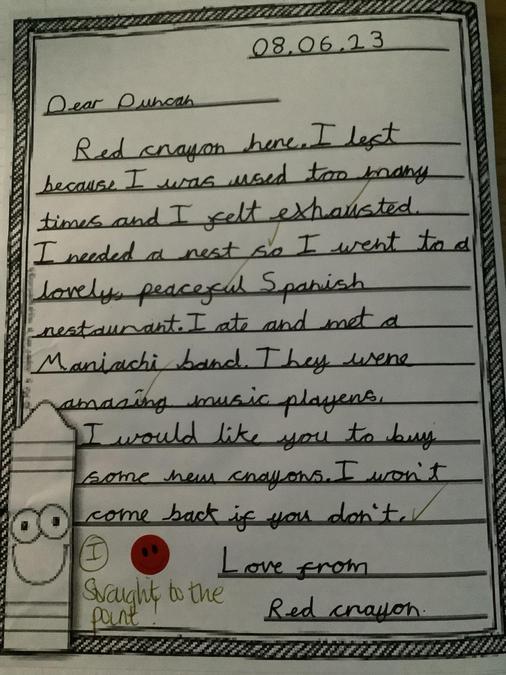 08.06.23
Dear Duncan
Red crayon here. I left
because I was used too many
times and I felt exhausted.
I needed a rest so I went to a
lovely, peaceful Spanish
restaurant. I ate and met a
Mariachi band. They were
amazing music players.
I would like you to buy
some new crayons. I won't
come back if you don't.
I
Love from
Straight to the
point!
Red crayon.